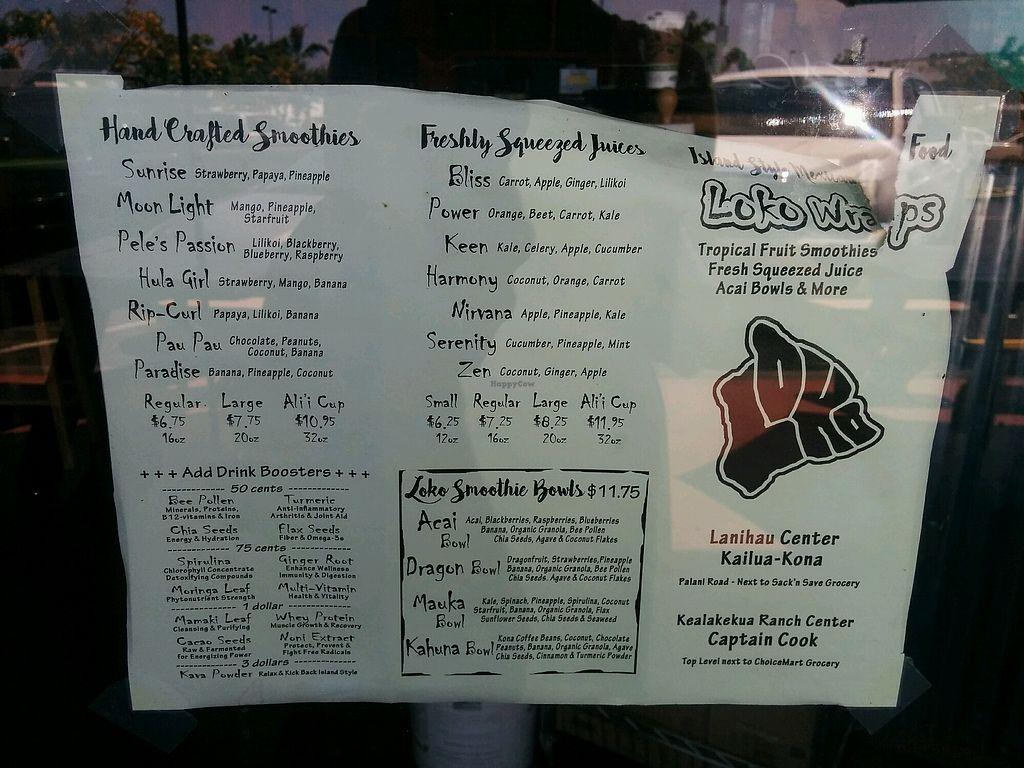 Hand Crafted Smoothies
Sunrise Strawberry, Papaya, Pineapple
Moon Light Mango, Pineapple,
Starfruit
Pele's Passion Lilikoi, Blackberry,
Blueberry, Raspberry
Hula Girl Strawberry, Mango, Banana
Rip-Curl Papaya, Lilikoi, Banana
Pau Pau Chocolate, Peanuts,
Coconut, Banana
Paradise Banana, Pineapple, Coconut
Regular Large Ali'i Cup
$6.75 $7.75 $10.95
16oz 20oz 32oz
+ + + Add Drink Boosters + + +
50 cents
Bee Pollen Turmeric
Minerals, Proteins, Anti-Inflammatory
B12-vitamins & Iron Arthritis & Joint Aid
Chia Seeds Flax Seeds
Energy & Hydration Fiber & Omega-3s
75 cents
Spirulina Ginger Root
Chlorophyll Concentrate Enhance Wellness
Detoxifying Compounds Immunity & Digestion
Moringa Leaf Multi-Vitamin
Phytonutrient Strength Health & Vitality
1 dollar
Mamaki Leaf Whey Protein
Cleansing & Purifying Muscle Growth & Recovery
Cacao Seeds Noni Extract
Raw & Fermented Protect, Prevent &
for Energizing Power Fight Free Radicals
3 dollars
Kava Powder Relax & Kick Back Island Style
Freshly Squeezed Juices
Bliss Carrot, Apple, Ginger, Lilikoi
Power Orange, Beet, Carrot, Kale
Keen Kale, Celery, Apple, Cucumber
Harmony Coconut, Orange, Carrot
Nirvana Apple, Pineapple, Kale
Serenity Cucumber, Pineapple, Mint
Zen Coconut, Ginger, Apple
HappyCow
Small Regular Large Ali'i Cup
$6.25 $7.25 $8.25 $11.95
12oz 16oz 20oz 32oz
Loko Smoothie Bowls $11.75
Acai Bowl Acai, Blackberries, Raspberries, Blueberries
Banana, Organic Granola, Bee Pollen
Chia Seeds, Agave & Coconut Flakes
Dragon Bowl Dragonfruit, Strawberries, Pineapple
Banana, Organic Granola, Bee Pollen
Chia Seeds, Agave & Coconut Flakes
Mauka Bowl Kale, Spinach, Pineapple, Spirulina, Coconut
Starfruit, Banana, Organic Granola, Flax
Sunflower Seeds, Chia Seeds & Seaweed
Kahuna Bowl Kona Coffee Beans, Coconut, Chocolate
Peanuts, Banana, Organic Granola, Agave
Chia Seeds, Cinnamon & Turmeric Powder
Island Style Mexican Food
Loko Wraps
Tropical Fruit Smoothies
Fresh Squeezed Juice
Acai Bowls & More
LOKO
Lanihau Center
Kailua-Kona
Palani Road - Next to Sack'n Save Grocery
Kealakekua Ranch Center
Captain Cook
Top Level next to ChoiceMart Grocery